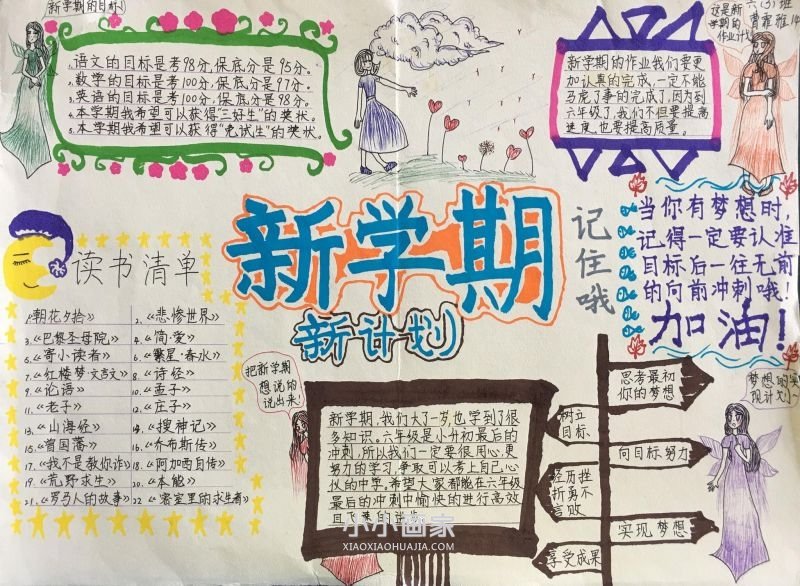 新学期的目标
语文的目标是考98分,保底分是95分。
数学的目标是考100分,保底分是97分。
英语的目标是考100分,保底分是98分。
本学期我希望可以获得"三好生"的奖状。
本学期我希望可以获得"免试生"的奖状。
这是新
学期的
作业计划
六(3)班
新学期的作业我们要更
加认真的完成,一定不能
马虎了事的完成了,因为到
六年级了,我们不但要提高
速度,也要提高质量。
新学期
新计划
记住哦
当你有梦想时,
记得一定要认准
目标后一往无前
的向前冲刺哦!
加油!
读书清单
1.《朝花夕拾》 2.《悲惨世界》
3.《巴黎圣母院》 4.《简·爱》
5.《寄小读者》 6.《繁星·春水》
7.《红楼梦·文言文》 8.《诗经》
9.《论语》 10.《孟子》
11.《老子》 12.《庄子》
13.《山海经》 14.《搜神记》
15.《曾国藩》 16.《乔布斯传》
17.《我不是教你诈》 18.《阿加西自传》
19.《荒野求生》 20.《本能》
21.《罗马人的故事》 22.《密室里的求生者》
把新学期
想说的
说出来!
新学期,我们大了一岁,也学到了很
多知识。六年级是小升初最后的
冲刺,所以我们一定要很用心,更
努力的学习,争取可以考上自己心
仪的中学。希望大家都能在六年级
最后的冲刺中愉快的进行高效
思考最初
你的梦想
树立
目标
向目标努力
经历挫
折勇不
言败
实现梦想
享受成果
梦想的实
现计划~
小小画家
XIAOXIAOHUAJIA.COM